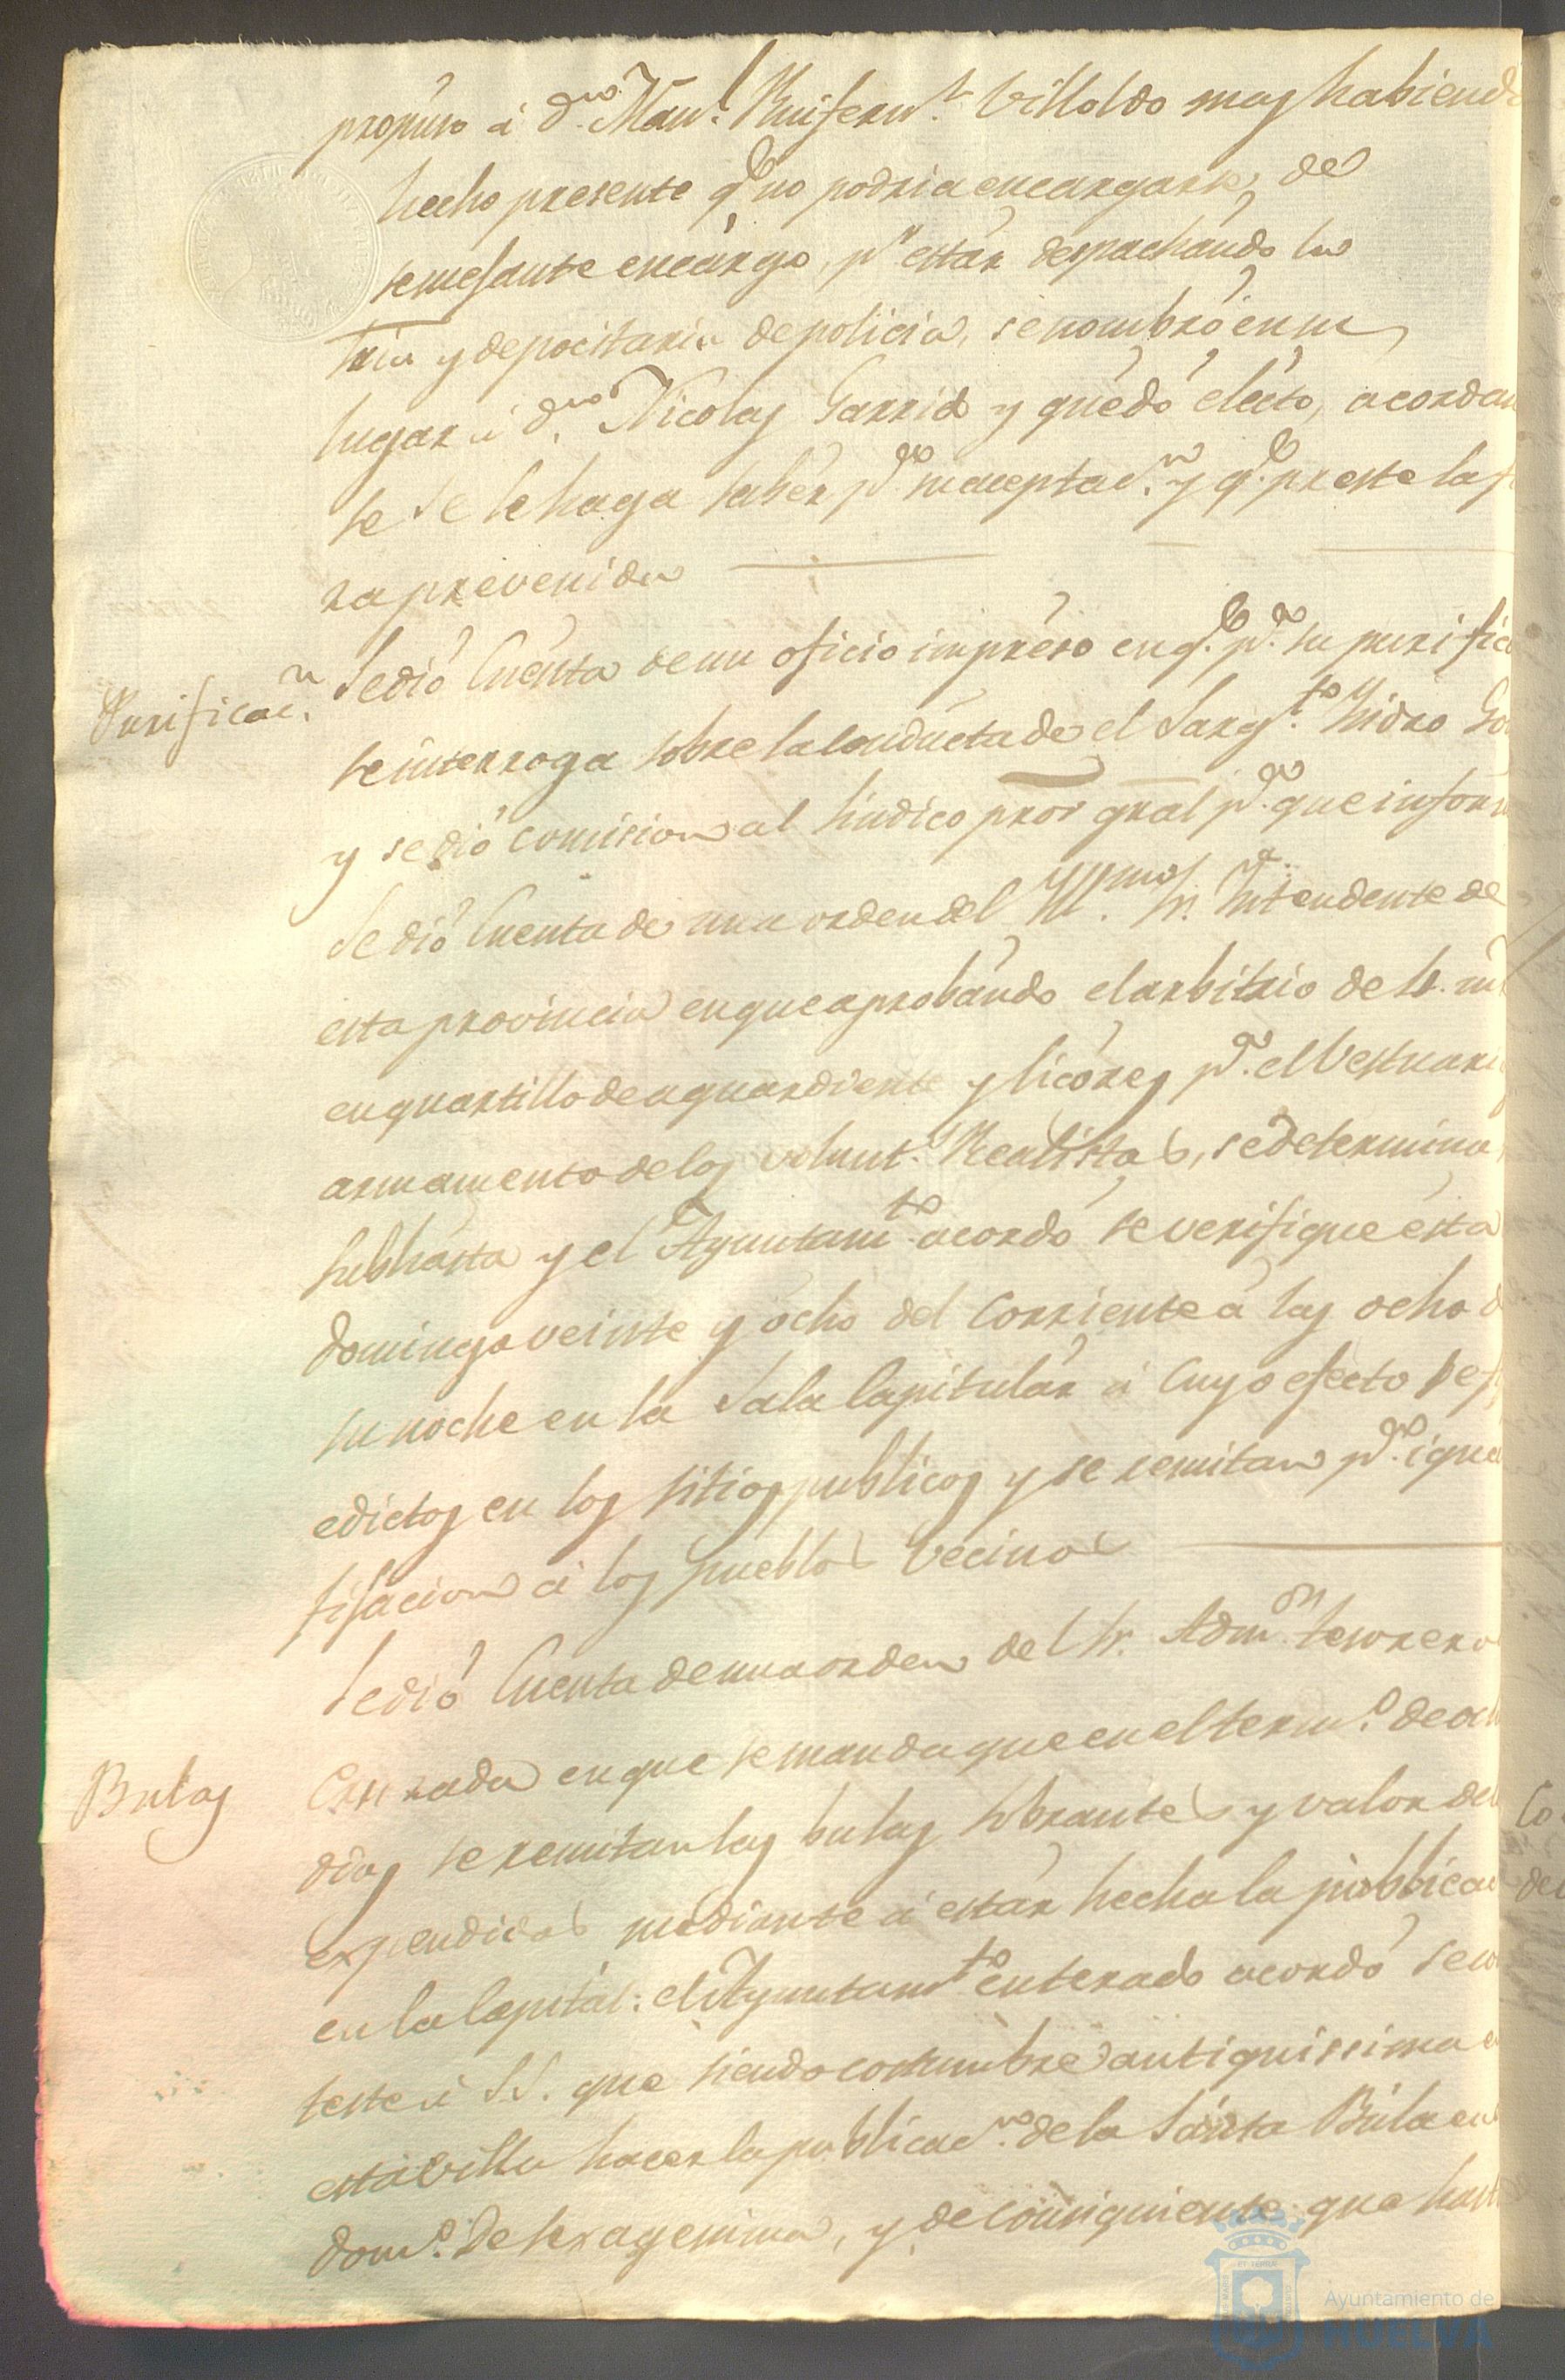 propuso á Dn. Manl. Villoldo mas habiendo
hecho presente qe. no podria encargarse de
semejante encargo, pr. estár despachando la
y depocitaria de policia, se nombró en su
lugar á Dn. Nicolas Garrido y quedó electo, acordan
se se le haga saber pa. su aceptacn. y qe. preste la
za prevenida
Purificacn.
Se dió Cuenta de un oficio impreso en qe. pa. su purific
se interroga sobre la conducta de el Sargto. Ysidro
y se dió comision al Sindico pror gral pa. que inform
Se dió Cuenta de una orden del Yllmo. Sr. Yntendente de
esta provincia en que aprobando el arbitrio de
en quartillo de aguardiente y licóres pa. el Vestuari
armamento de los volunts. Realistas, se determina
subhasta y el Ayuntamto. acordó se verifique esta
domingo veinte y ocho del corriente á las ocho d
su noche en la Sala Capitulár á cuyo efecto se
edictos en los sitios publicos y se remitan pa. igua
fijacion á los pueblos Vecinos
Se dió Cuenta de una orden del Sr. Admor. tesorero
Bulas
Cruzada en que se manda que en el termo. de och
dias se remitan las bulas sobrantes y valor de
expendidas mediante á estár hecha la publicac
en la Capitál: el Ayuntamto. enterado acordó se con
teste á S.S. que siendo costumbre antiquissima
esta villa hacer la publicacn. de la Santa Bula en
domo. de sexagesima, y de consiguiente que hast
Co
de
Ayuntamiento de
HUELVA